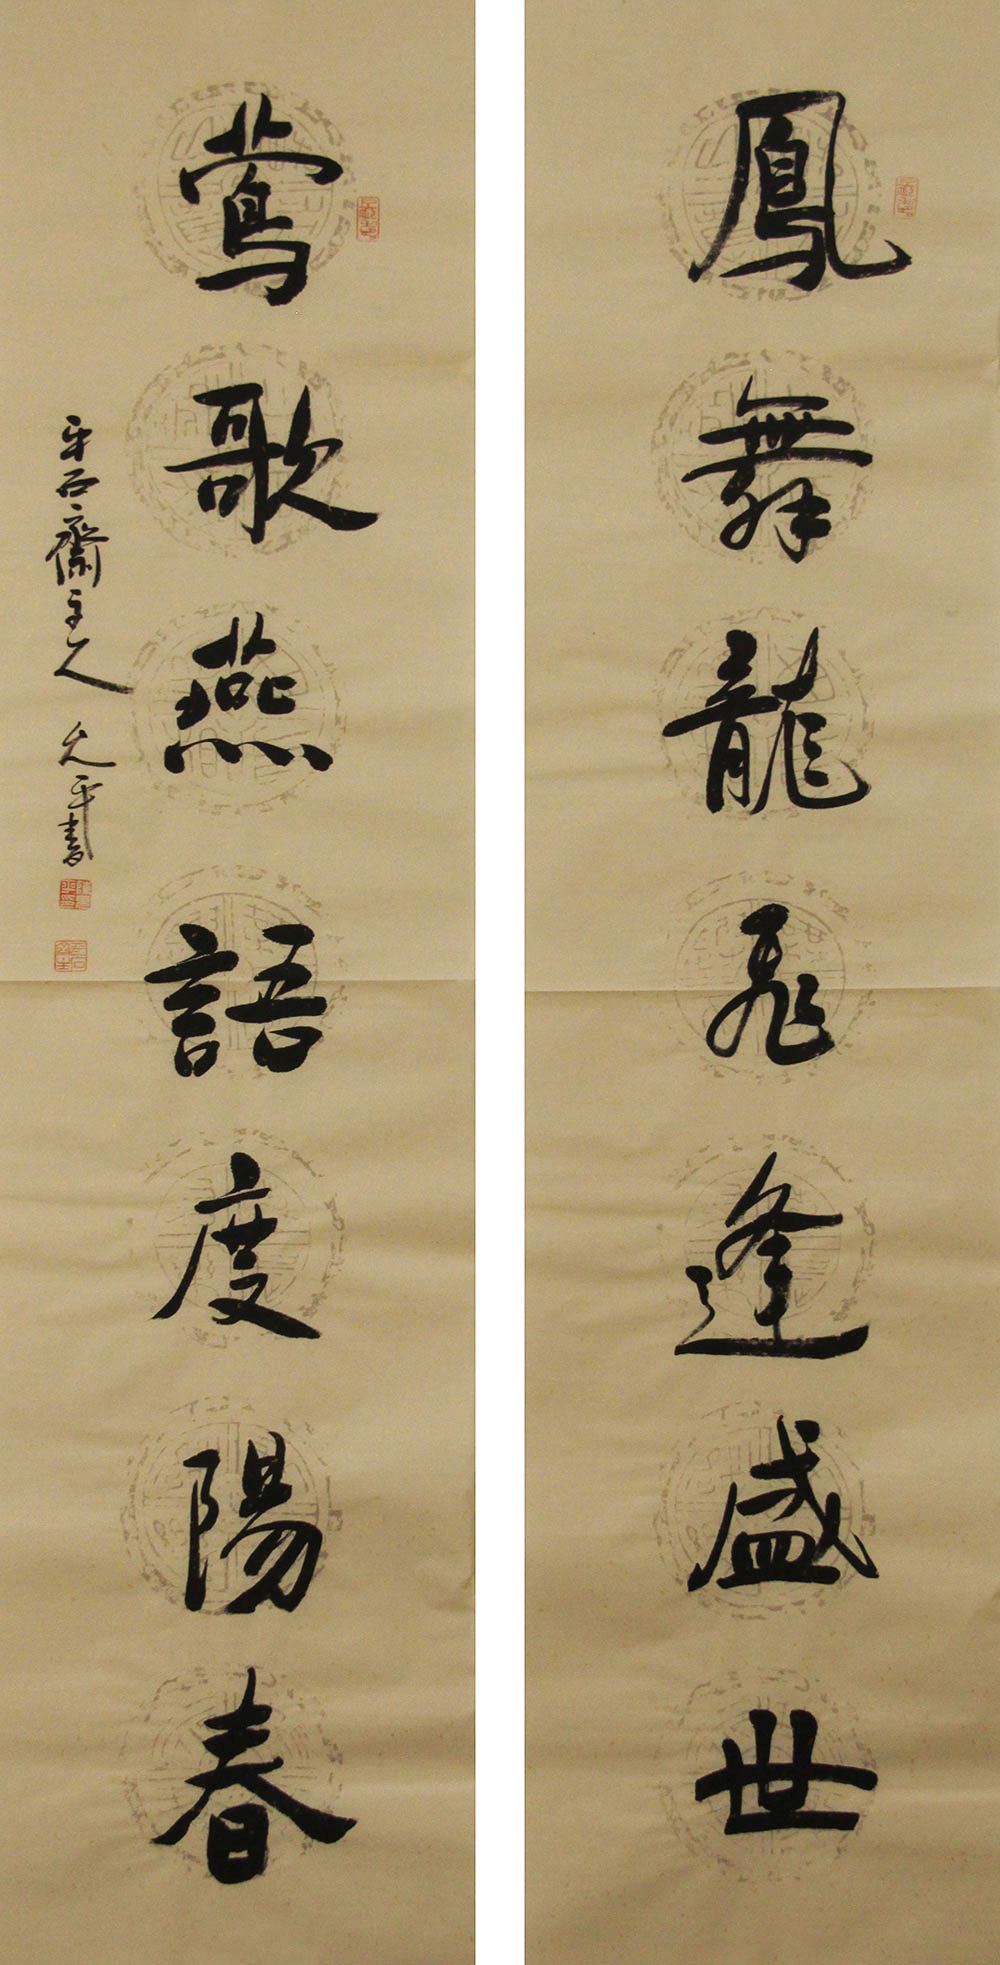 鳳舞龍飛逢盛世
莺歌燕語度陽春
齋主人 允平書